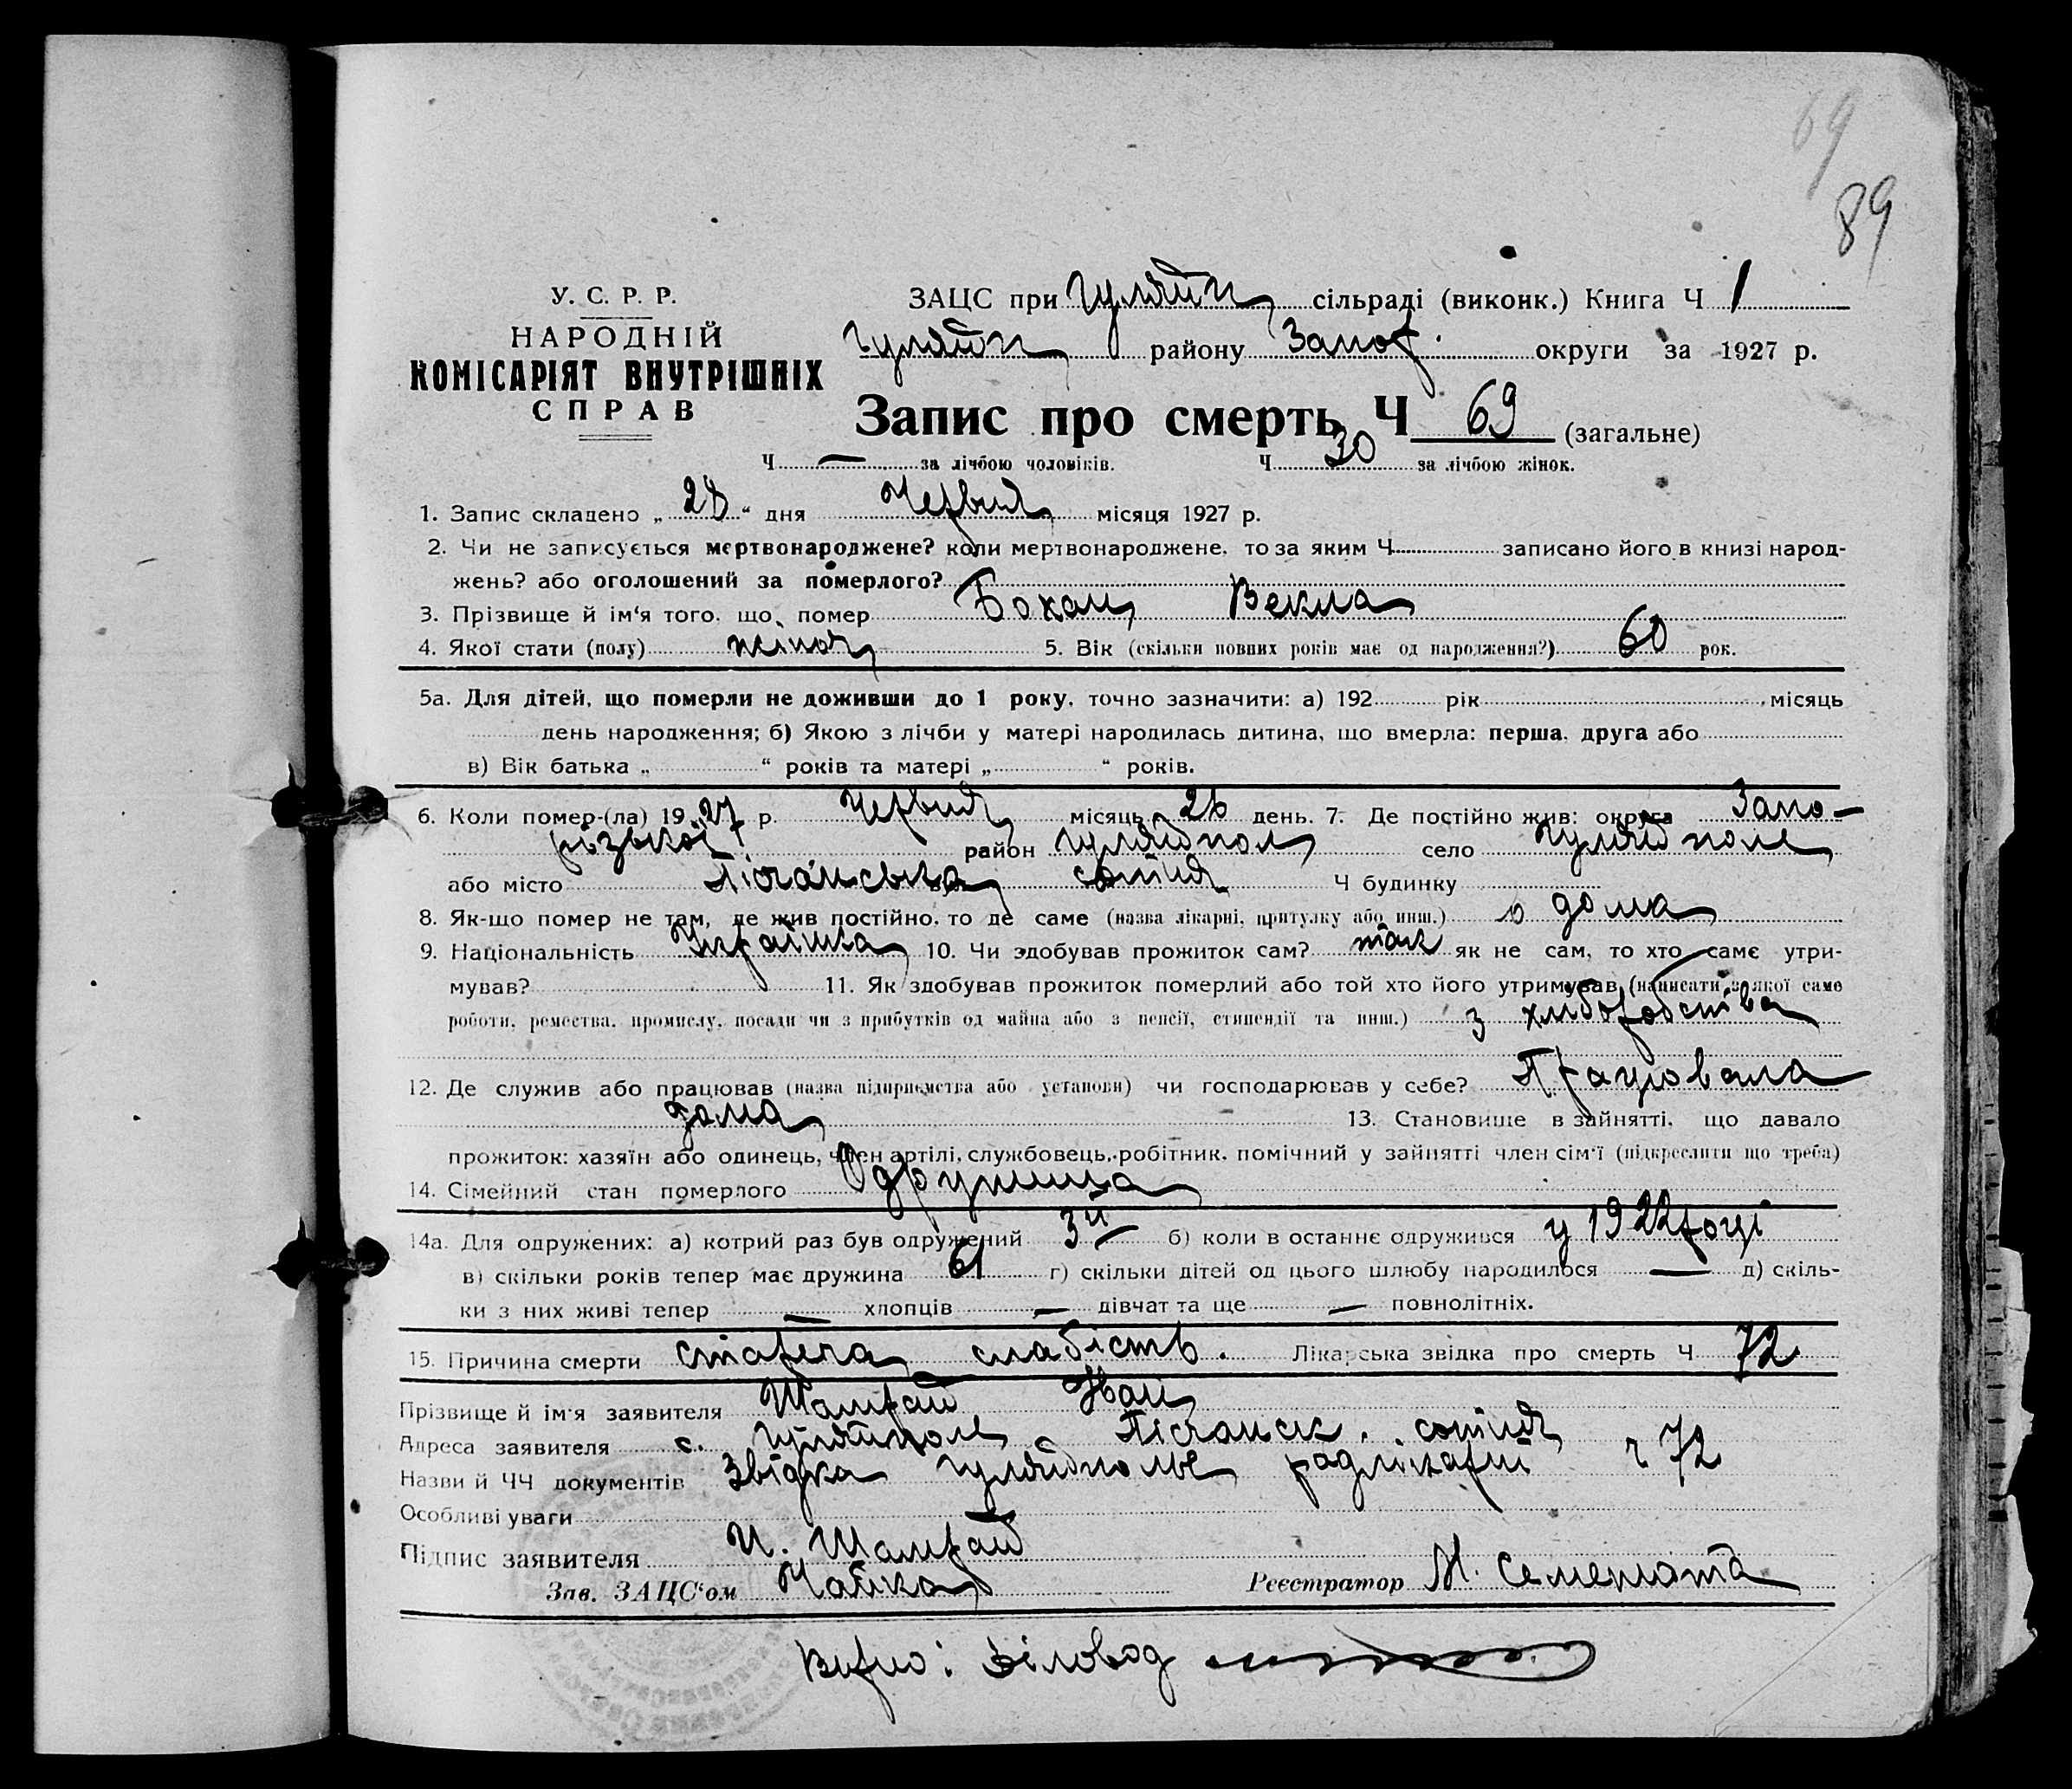 69
89
У. С. Р. Р.
НАРОДНІЙ
КОМІСАРІЯТ ВНУТРІШНІХ
СПРАВ
ЗАЦС при Гуляйп сільраді (виконк.) Книга Ч 1
Гуляйп району Запор. округи за 1927 р.
Запис про смерть Ч 69 (загальне)
Ч — за лічбою чоловіків. Ч 30 за лічбою жінок.
1. Запис складено „ 28 “ дня Червня місяця 1927 р.
2. Чи не записується мертвонароджене? коли мертвонароджене, то за яким Ч записано його в книзі народ-
жень? або оголошений за померлого?
3. Прізвище й ім'я того, що помер Бохан Векла
4. Якої стати (полу) жіноч 5. Вік (скільки повних років має од народження?) 60 рок.
5а. Для дітей, що померли не доживши до 1 року, точно зазначити: а) 192 рік місяць
день народження; б) Якою з лічби у матері народилась дитина, що вмерла: перша, друга або
в) Вік батька „ “ років та матері „ “ років.
6. Коли помер-(ла) 19 27 р. Червня місяць 26 день. 7. Де постійно жив: округа Запо-
різької район Гуляйпол село Гуляйполе
або місто Пісчанська сотня Ч будинку
8. Як-що помер не там, де жив постійно, то де саме (назва лікарні, притулку або инш.) дома
9. Національність Українка 10. Чи здобував прожиток сам? так як не сам, то хто саме утри-
мував? 11. Як здобував прожиток померлий або той хто його утримував (написати з якої саме
роботи, ремества, промислу, посади чи з прибутків од майна або з пенсії, стипендії та инш.) з хліборобства
12. Де служив або працював (назва підприємства або установи) чи господарював у себе? Працювала
дома 13. Становище в зайнятті, що давало
прожиток: хазяїн або одинець, член артілі, службовець, робітник, помічний у зайнятті член сім'ї (підкреслити що треба)
14. Сімейний стан померлого Одружина
14а. Для одружених: а) котрий раз був одружений 3й б) коли в останнє одружився у 1922 році
в) скільки років тепер має дружина 61 г) скільки дітей од цього шлюбу народилося — д) скіль-
ки з них живі тепер — хлопців — дівчат та ще — повнолітніх.
15. Причина смерти стареча слабість. Лікарська звідка про смерть Ч 72
Прізвище й ім'я заявителя Шамрай Іван
Адреса заявителя с. Гуляйполе Пісчанск. сотня
Назви й ЧЧ документів Звідка Гуляйпольс радлікарні ч 72
Особливі уваги
Підпис заявителя И. Шамрай
Зав. ЗАЦС'ом Чайка Реєстратор М. Семенюта
Верно: Біловод